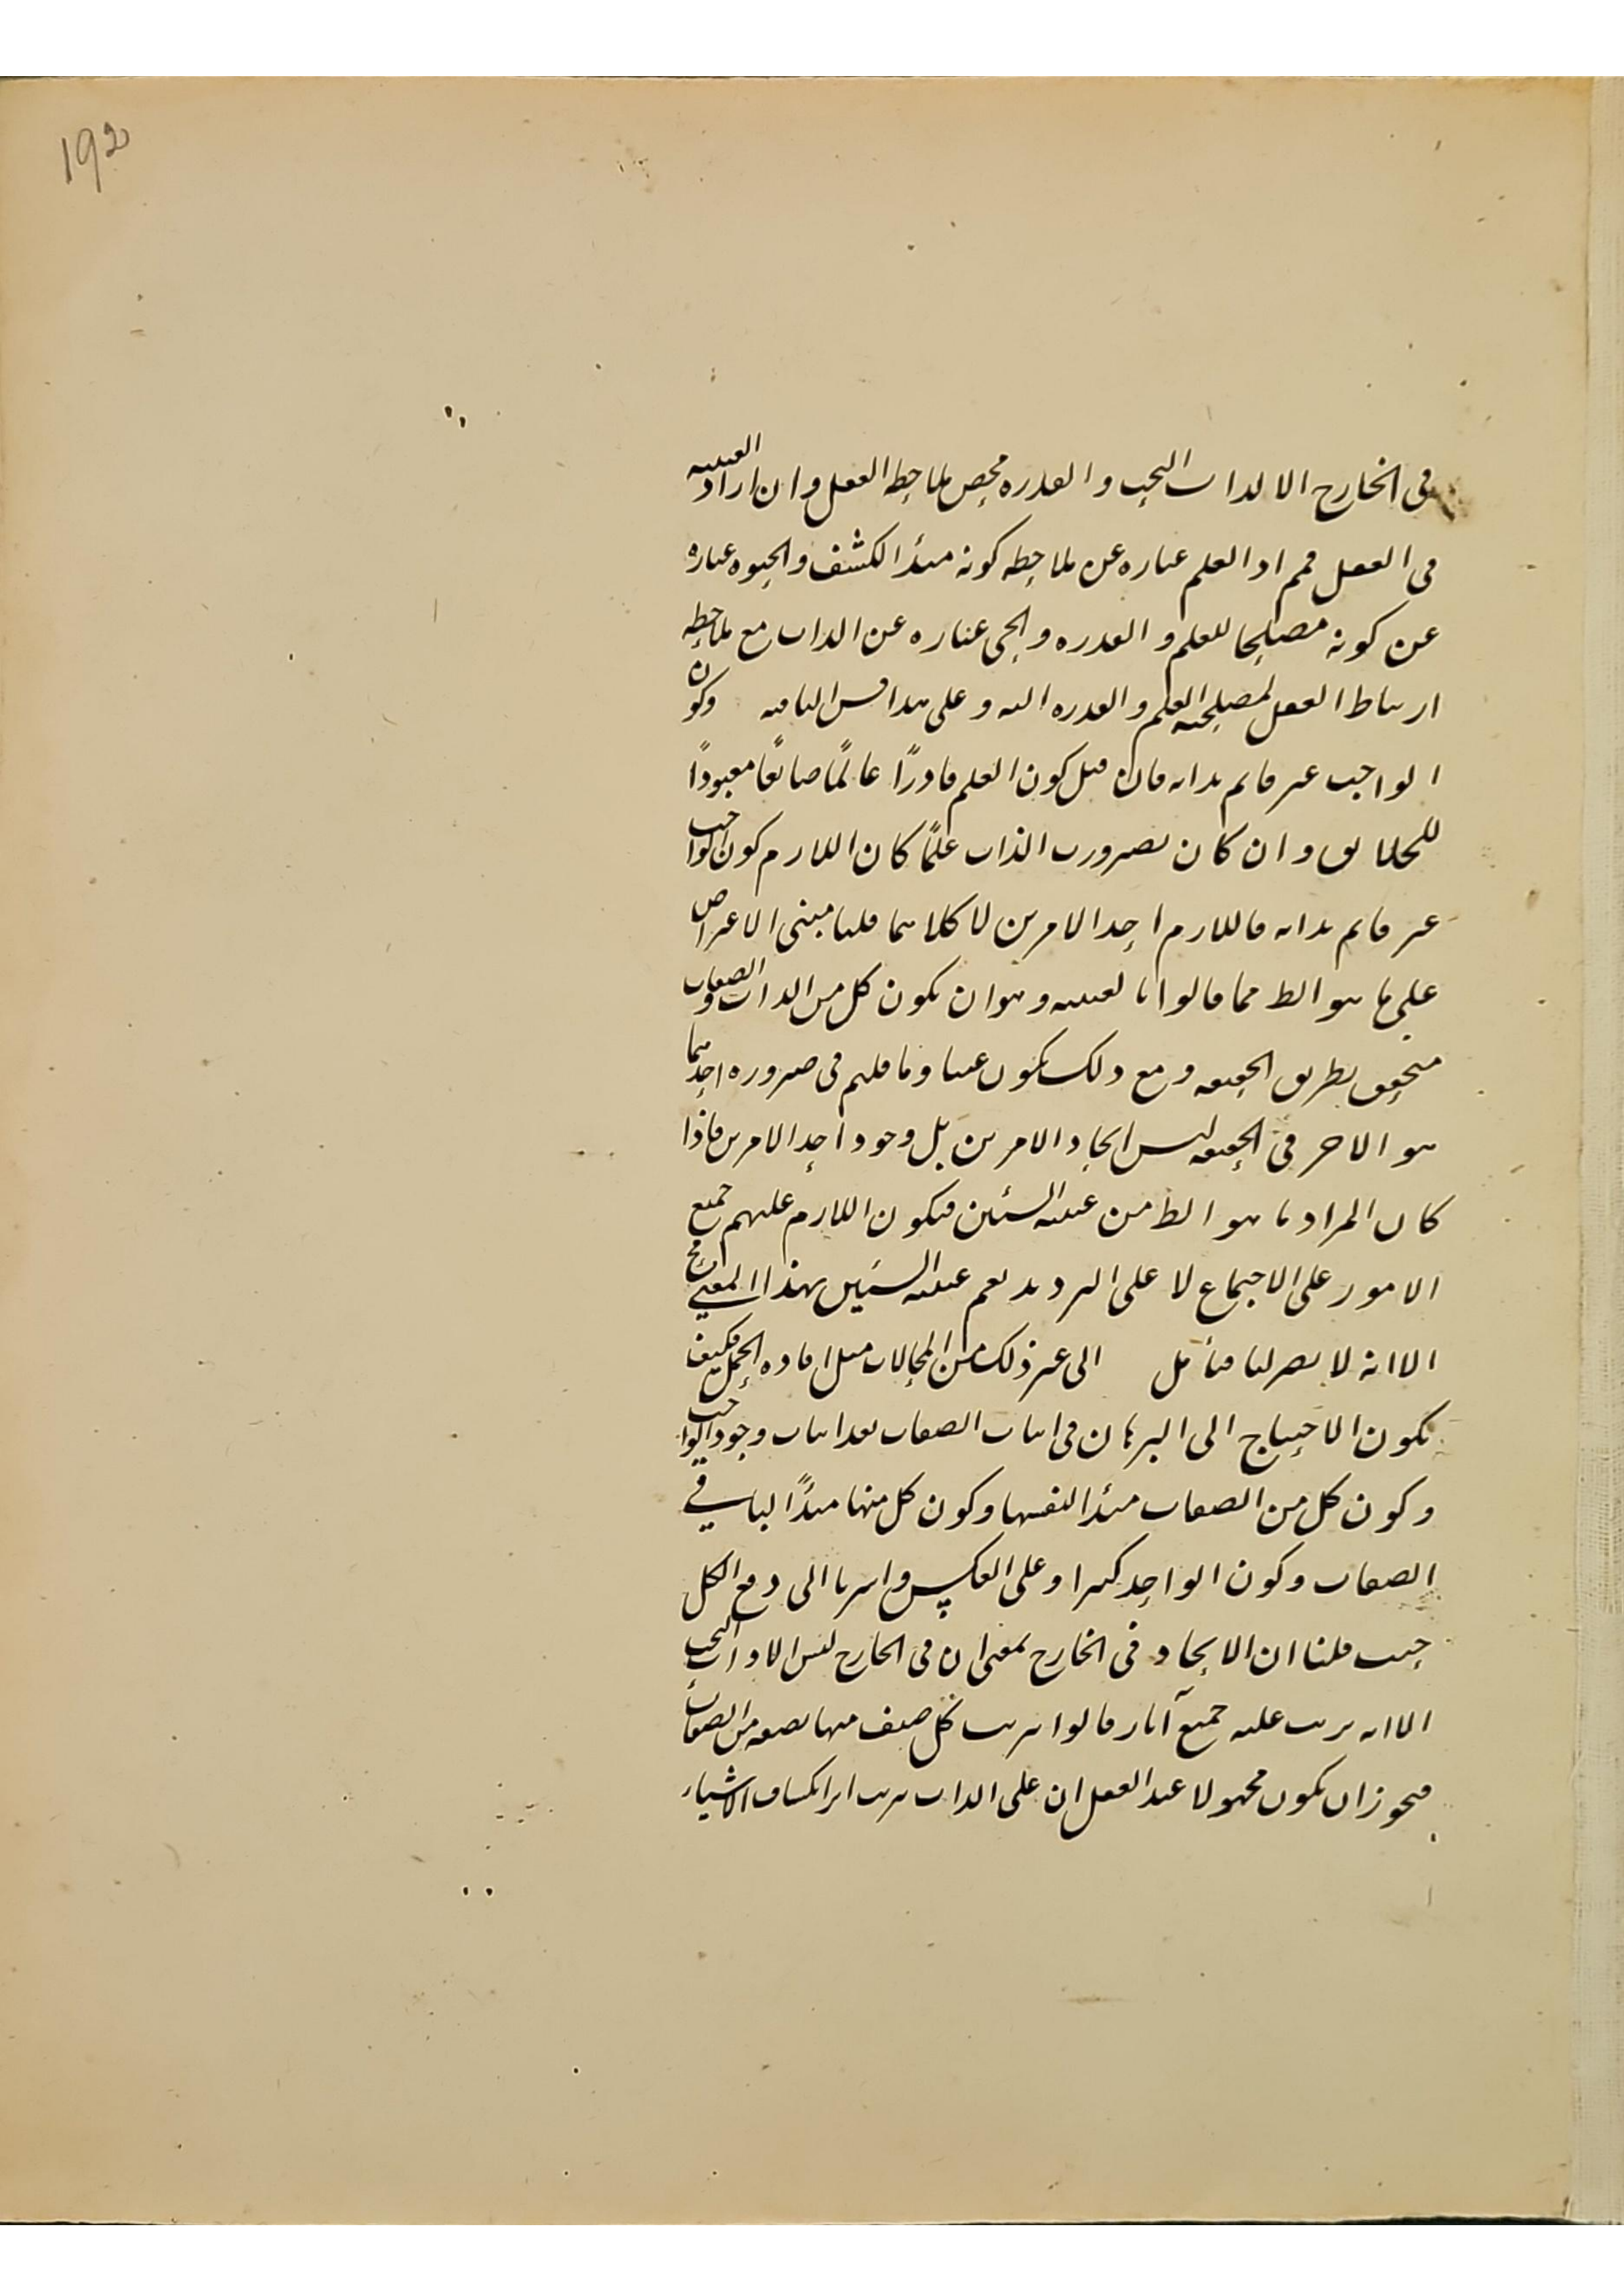 192
في الخارج الا الذات البحت والقدرة محض ملاحظة العقل وان اراد العينية
في العقل فمم اذ العلم عبارة عن ملاحظة كونه مبدأ الكشف والحيوة عبارة
عن كونه مصلحا للعلم والقدرة والحي عبارة عن الذات مع ملاحظة
ارتباط العقل لمصلحية العلم والقدرة اليه وعلى هذا قس الباقية وكون
الواجب غير قائم بذاته فان قيل كون العلم قادرًا عالمًا صانعًا معبودًا
للخلائق وان كان بصيرورت الذات علمًا كان اللازم كون الواجب
غير قائم بذاته فاللازم احد الامرين لا كلاهما قلنا مبنى الاعتراض
على ما هو الظ مما قالوا بالعينية وهو ان يكون كل من الذات والصفات
متحقق بطريق الحقيقة ومع ذلك يكون عينا وما قلتم في صيرورة احدهما
هو الاخر في الحقيقة ليس اتحاد الامرين بل وجود احد الامرين فاذا
كان المراد ما هو الظ من عينية الشيئين فيكون اللازم عليهم جميع
الامور على الاجتماع لا على الترديد نعم عينية الشيئين بهذا المعنى مح
الا انه لا يضر لنا فتأمل الى غير ذلك من المحالات مثل افادة الحمل فكيف
يكون الاحتياج الى البرهان في اثبات الصفات بعد اثبات وجود الواجب
وكون كل من الصفات مبدأ لنفسها وكون كل منها مبدًأ لباقي
الصفات وكون الواحد كثيرا وعلى العكس واشرنا الى دفع الكل
حيث قلنا ان الاتحاد في الخارج بمعنى ان في الخارج ليس الا ذات البحت
الا انه يترتب عليه جميع آثار قالوا بترتب كل صنف منها بصفة من الصفات
فيجوز ان يكون مجهولا عند العقل ان على الذات يترتب اثر انكشاف الاشياء